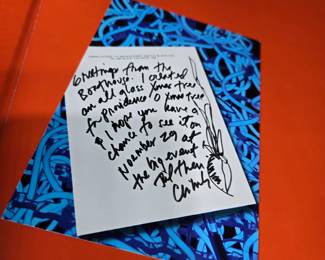 Greetings from the
Boathouse. I created
an all glass Xmas tree
for providence
& I hope you have a
chance to see it on
November 29 at
the big event
Till then
Chihuly